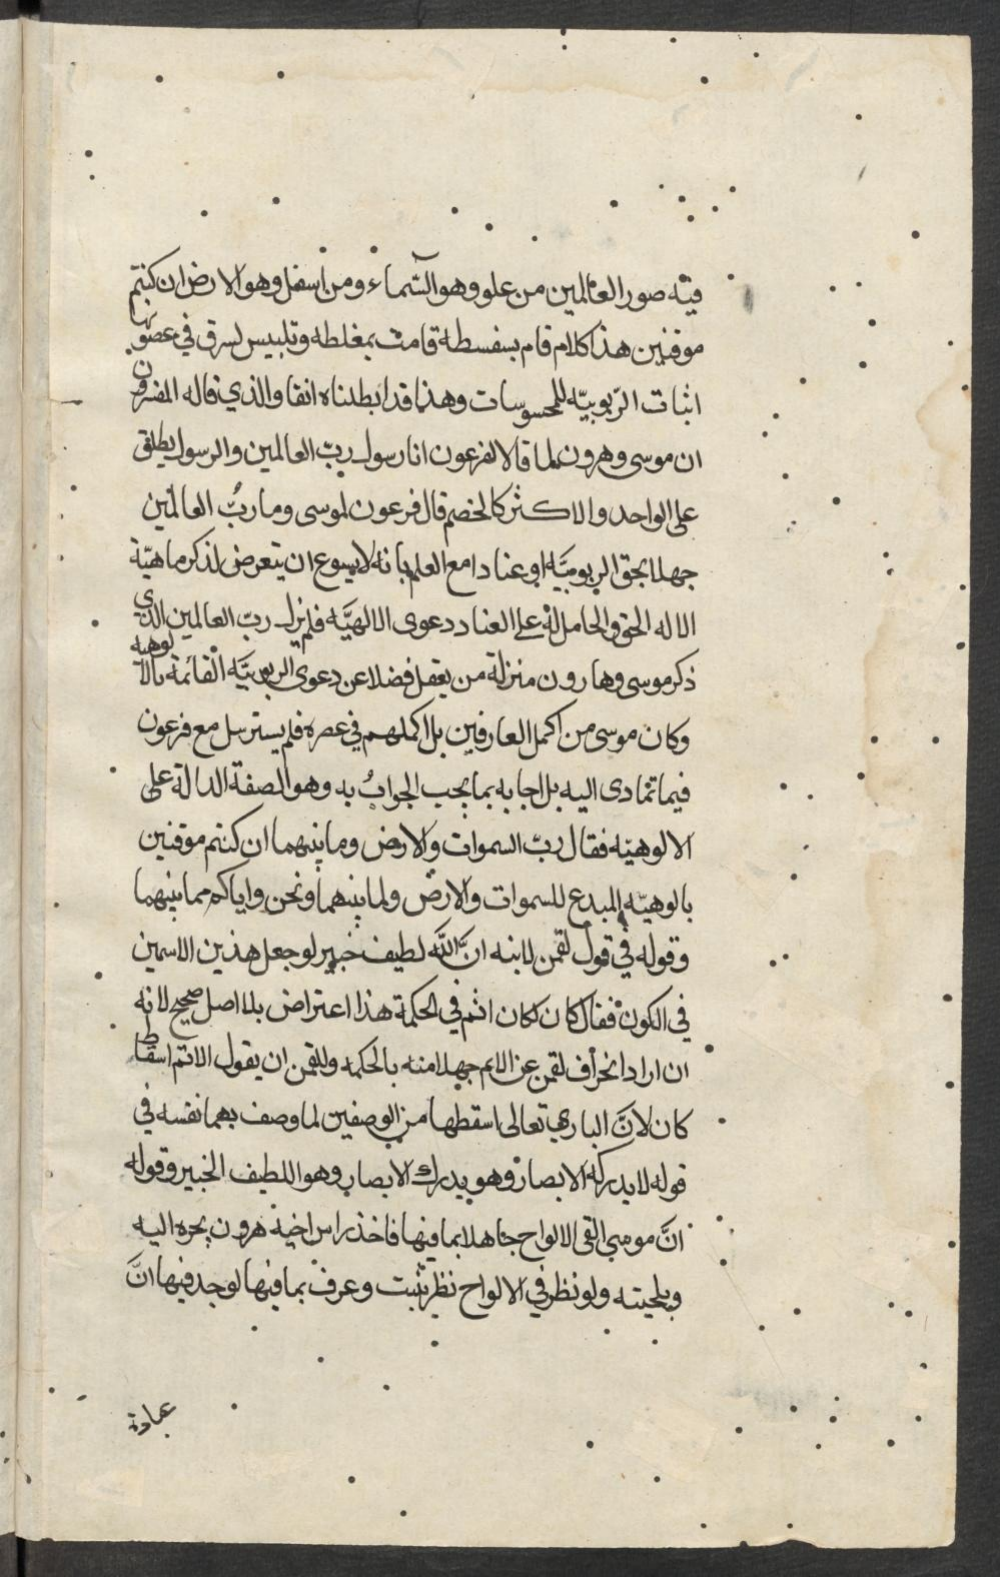 فيه صور العالمين من علو وهو السماء ومن اسفل وهو الارض ان كنتم
موقنين هذا كلام قام بسفسطة قامت بمغلطه وتلبيس لسرق في
اثبات الربوبيّه للمحسوسات وهذا قد ابطلناه انفا والذي قاله المفسرون
ان موسى وهرون لما قالا لفرعون انا رسول ربّ العالمين والرسول يطلق
على الواحد والاكثر كالخصم قال فرعون لموسى وما ربُّ العالمين
جهلا بحق الربوبيَّه او عنادا مع العلم بانه لا يسوع ان يتعرض لذكر ماهيّة
الاله الحق والحامل له على العناد دعوى الالهيَّه فلم ينزل ربّ العالمين الذي
ذكر موسى وهارون منزلة من يعقل فضلا عن دعوى الربوبيَّه القائمة بالالوهيه
وكان موسى من اكمل العارفين بل اكملهم في عصره فلم يسترسل مع فرعون
فيما تمادى اليه بل اجابه بما يجب الجوابُ به وهو الصفة الدالة على
الالوهيّه فقال ربّ السموات والارض وما بينهما ان كنتم موقنين
بالوهيّه المبدع للسموات والارض ولما بينهما ونحن واياكم مما بينهما
وقوله في قول لقمن لابنه انَّ اللّه لطيف خبير لو جعل هذين الاسمين
في الكون فقال كان لكان اتم في الحكمة هذا اعتراض بلا اصل صحيح لانه
ان اراد انحراف لقمن عن الاتم جهلا منه بالحكمه وللقمن ان يقول الاتم اسقاط
كان لانَّ الباري تعالى اسقطها من الوصفين لما وصف بهما نفسه في
قوله لا يدركه الابصار وهو يدرك الابصار وهو اللطيف الخبير وقوله
انَّ موسى القى الالواح جاهلا بما فيها فاخذ راس اخيه هرون يجره اليه
وبلحيته ولو نظر في الالواح نظر تثبت وعرف بما فيها لوجد فيها انَّ
عبادة